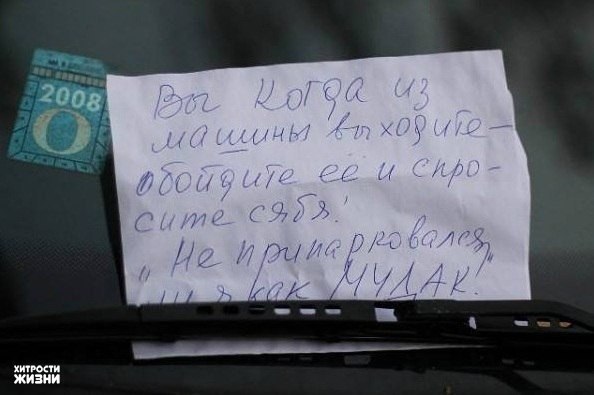 2008
О
Вы когда из
машины выходите—
обойдите её и спро-
сите сябя!
„Не припарковался
ли я как МУДАК!"
ХИТРОСТИ
ЖИЗНИ